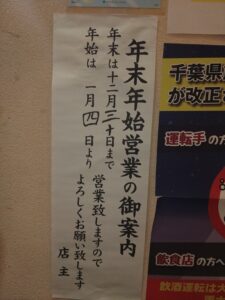 年末年始営業の御案内
年末は十二月三十日まで
年始は 一月四日より
営業致しますので
よろしくお願い致します
店主
千葉県
が改正
運転手の方
飲食店の方へ
飲酒運転は